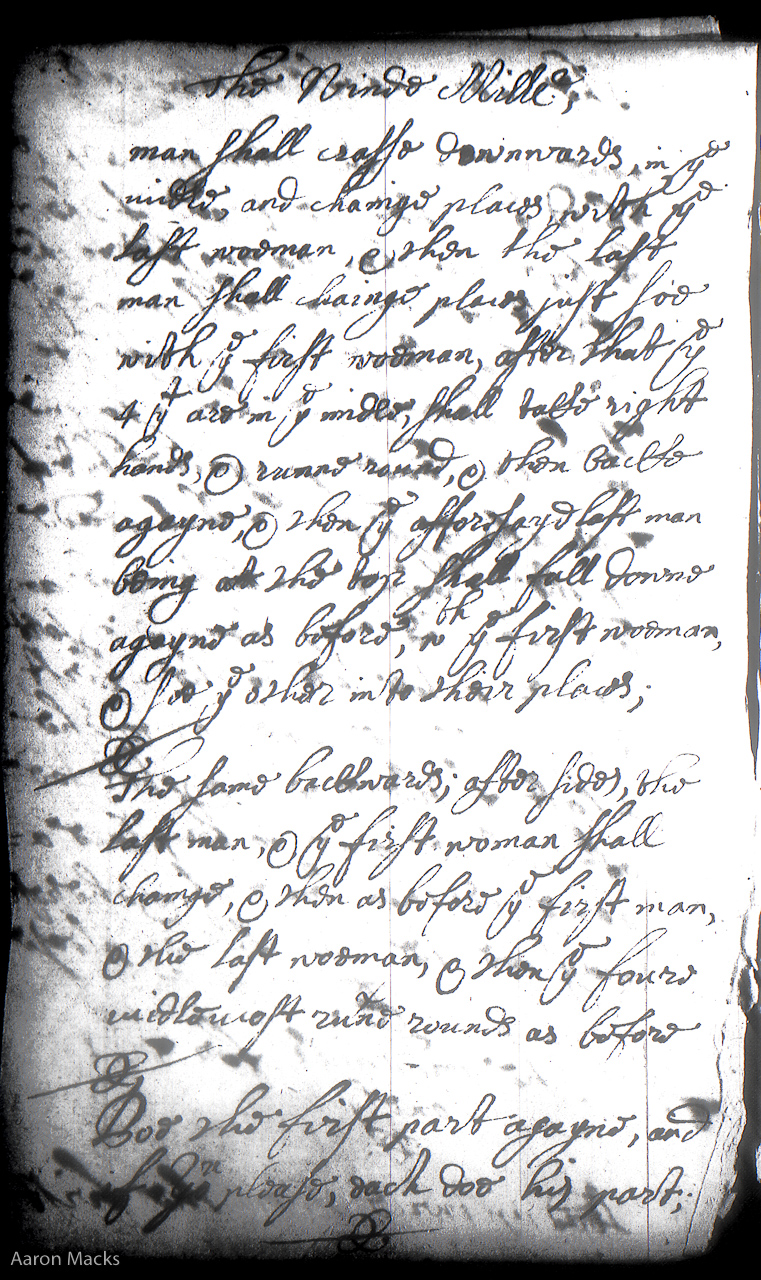 The Winde Mille,
man shall crasse downwards, in yᵉ
midle, and chainge places, with yᵉ
last woeman, & then the last
man shall chainge places just soe
with yᵉ first woeman, after that yᵉ
4 yᵗ are in yᵉ midle, shall take right
hands, & runne round, & then backe
agayne, & then yᵉ afforesayd last man
being att the top shall fall downe
agayne as before, wᵗʰ yᵉ first woeman,
& soe yᵉ other into their places;
The same backwards; after sides, the
last man, & yᵉ first woman shall
chainge, & then as before yᵉ first man,
& the last woeman, & then yᵉ foure
midlemost runne rounds as before
Doe the first part agayne, and
if you please, each doe his part;
Aaron Macks